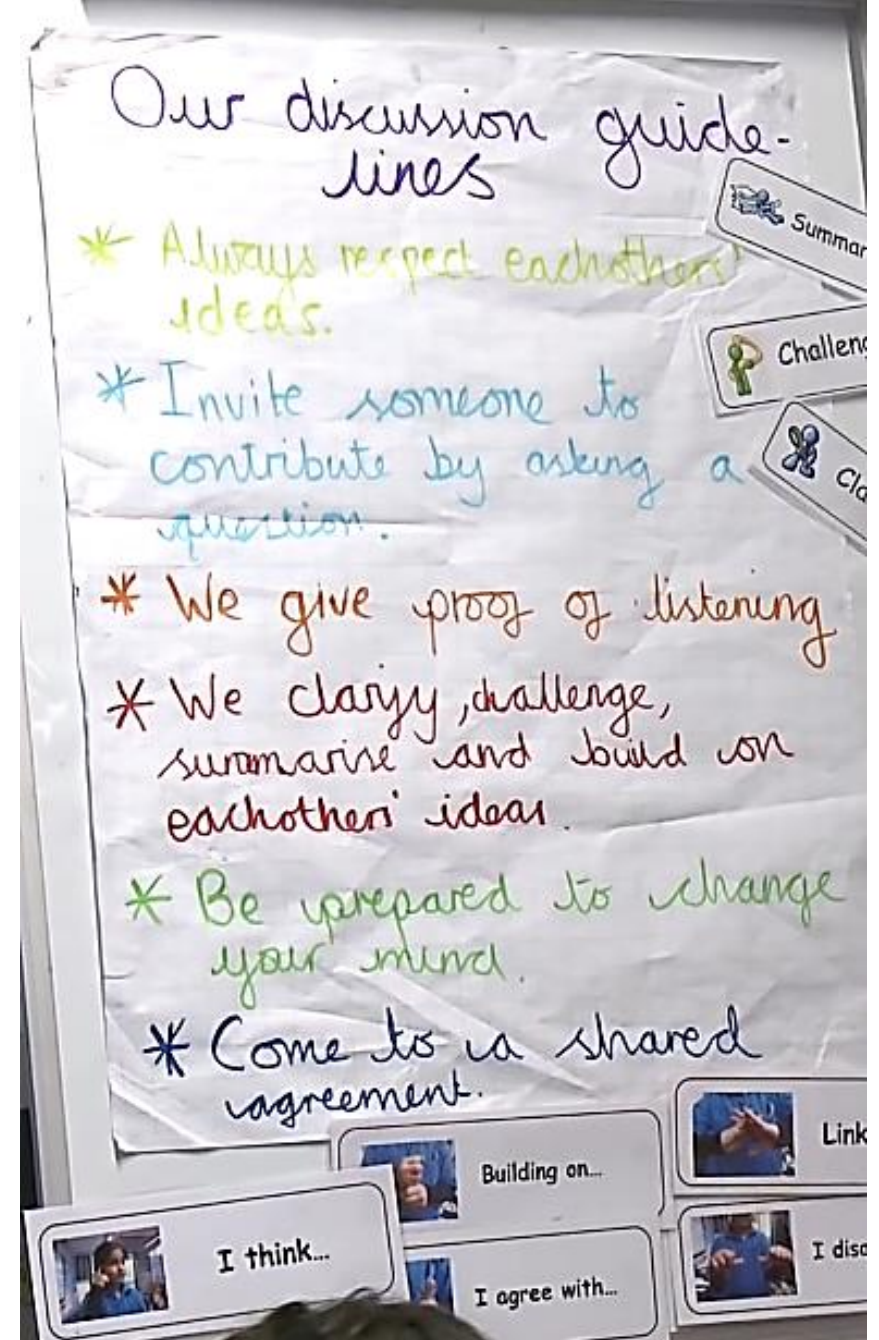 Our discussion guide-
lines
* Always respect eachothers'
ideas.
* Invite someone to
contribute by asking a
question.
* We give proof of listening
* We clarify, challenge,
summarise and build on
eachothers' ideas.
* Be prepared to change
your mind.
* Come to a shared
agreement.
Summar
Challeng
Cla
Building on...
Link
I think...
I agree with...
I disa